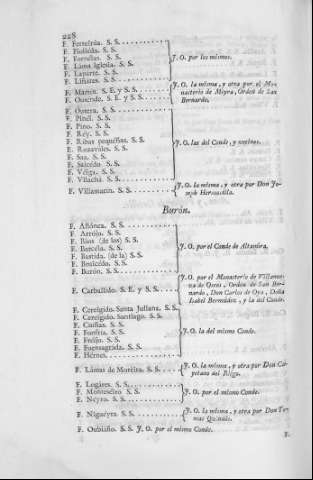 228
F. Forneirúa. S. S.
F. Fiollèda. S. S.
F. Fornelas. S. S.
F. Lama Iglesia. S. S.
F. Laparte. S. S.
F. Liñares. S. S.
J. O. por los mismos.
F. Mamin. S. E. y S. S.
F. Ousende. S. E. y S. S.
J. O. la misma, y otra por el Mo-
nasterio de Meyra, Orden de San
Bernardo.
F. S. S.
F. Pinèl. S. S.
F. Pino. S. S.
F. Rey. S. S.
F. Ribas pequeñas. S. S.
F. S. S.
F. Saa. S. S.
F. Salcèda. S. S.
F. Vèiga. S. S.
F. Vilacha. S. S.
J. O. las del Conde, y vecinos.
F. Villamarin. S. S.
J. O. la misma, y otra por Don Jo-
seph
Barón.
F. S. S.
F. Arròjo. S. S.
F. Bàos (de los) S. S.
F. Barcela. S. S.
F. Bastida. (de la) S. S.
F. S. S.
F. Barón. S. S.
J. O. por el Conde de Altamira.
F. Carballido. S. E. y S. S.
J. O. por el Monasterio de Villanue-
va de Orden de San Ber-
nardo, Don Carlos de Oya, Doña
Isabel Bermudez, y la del Conde.
F. Cereigido. Santa Juliana. S. S.
F. Cereigido. Santiago. S. S.
F. S. S.
F. Fonfria. S. S.
F. Freijo. S. S.
F. Fuensagrada. S. S.
F. Hèrmos. S. S.
J. O. la del mismo Conde.
F. Làmas de Moreira. S. S.
J. O. la misma, y otra por Don Ca-
yetano del
F. Logares. S. S.
F. Monteseiro. S. S.
F. Neyro. S. S.
J. O. por el mismo Conde.
F. S. S.
J. O. la misma, y otra por Don
F. Oubiaño. S. S. J. O. por el mismo Conde.
F.